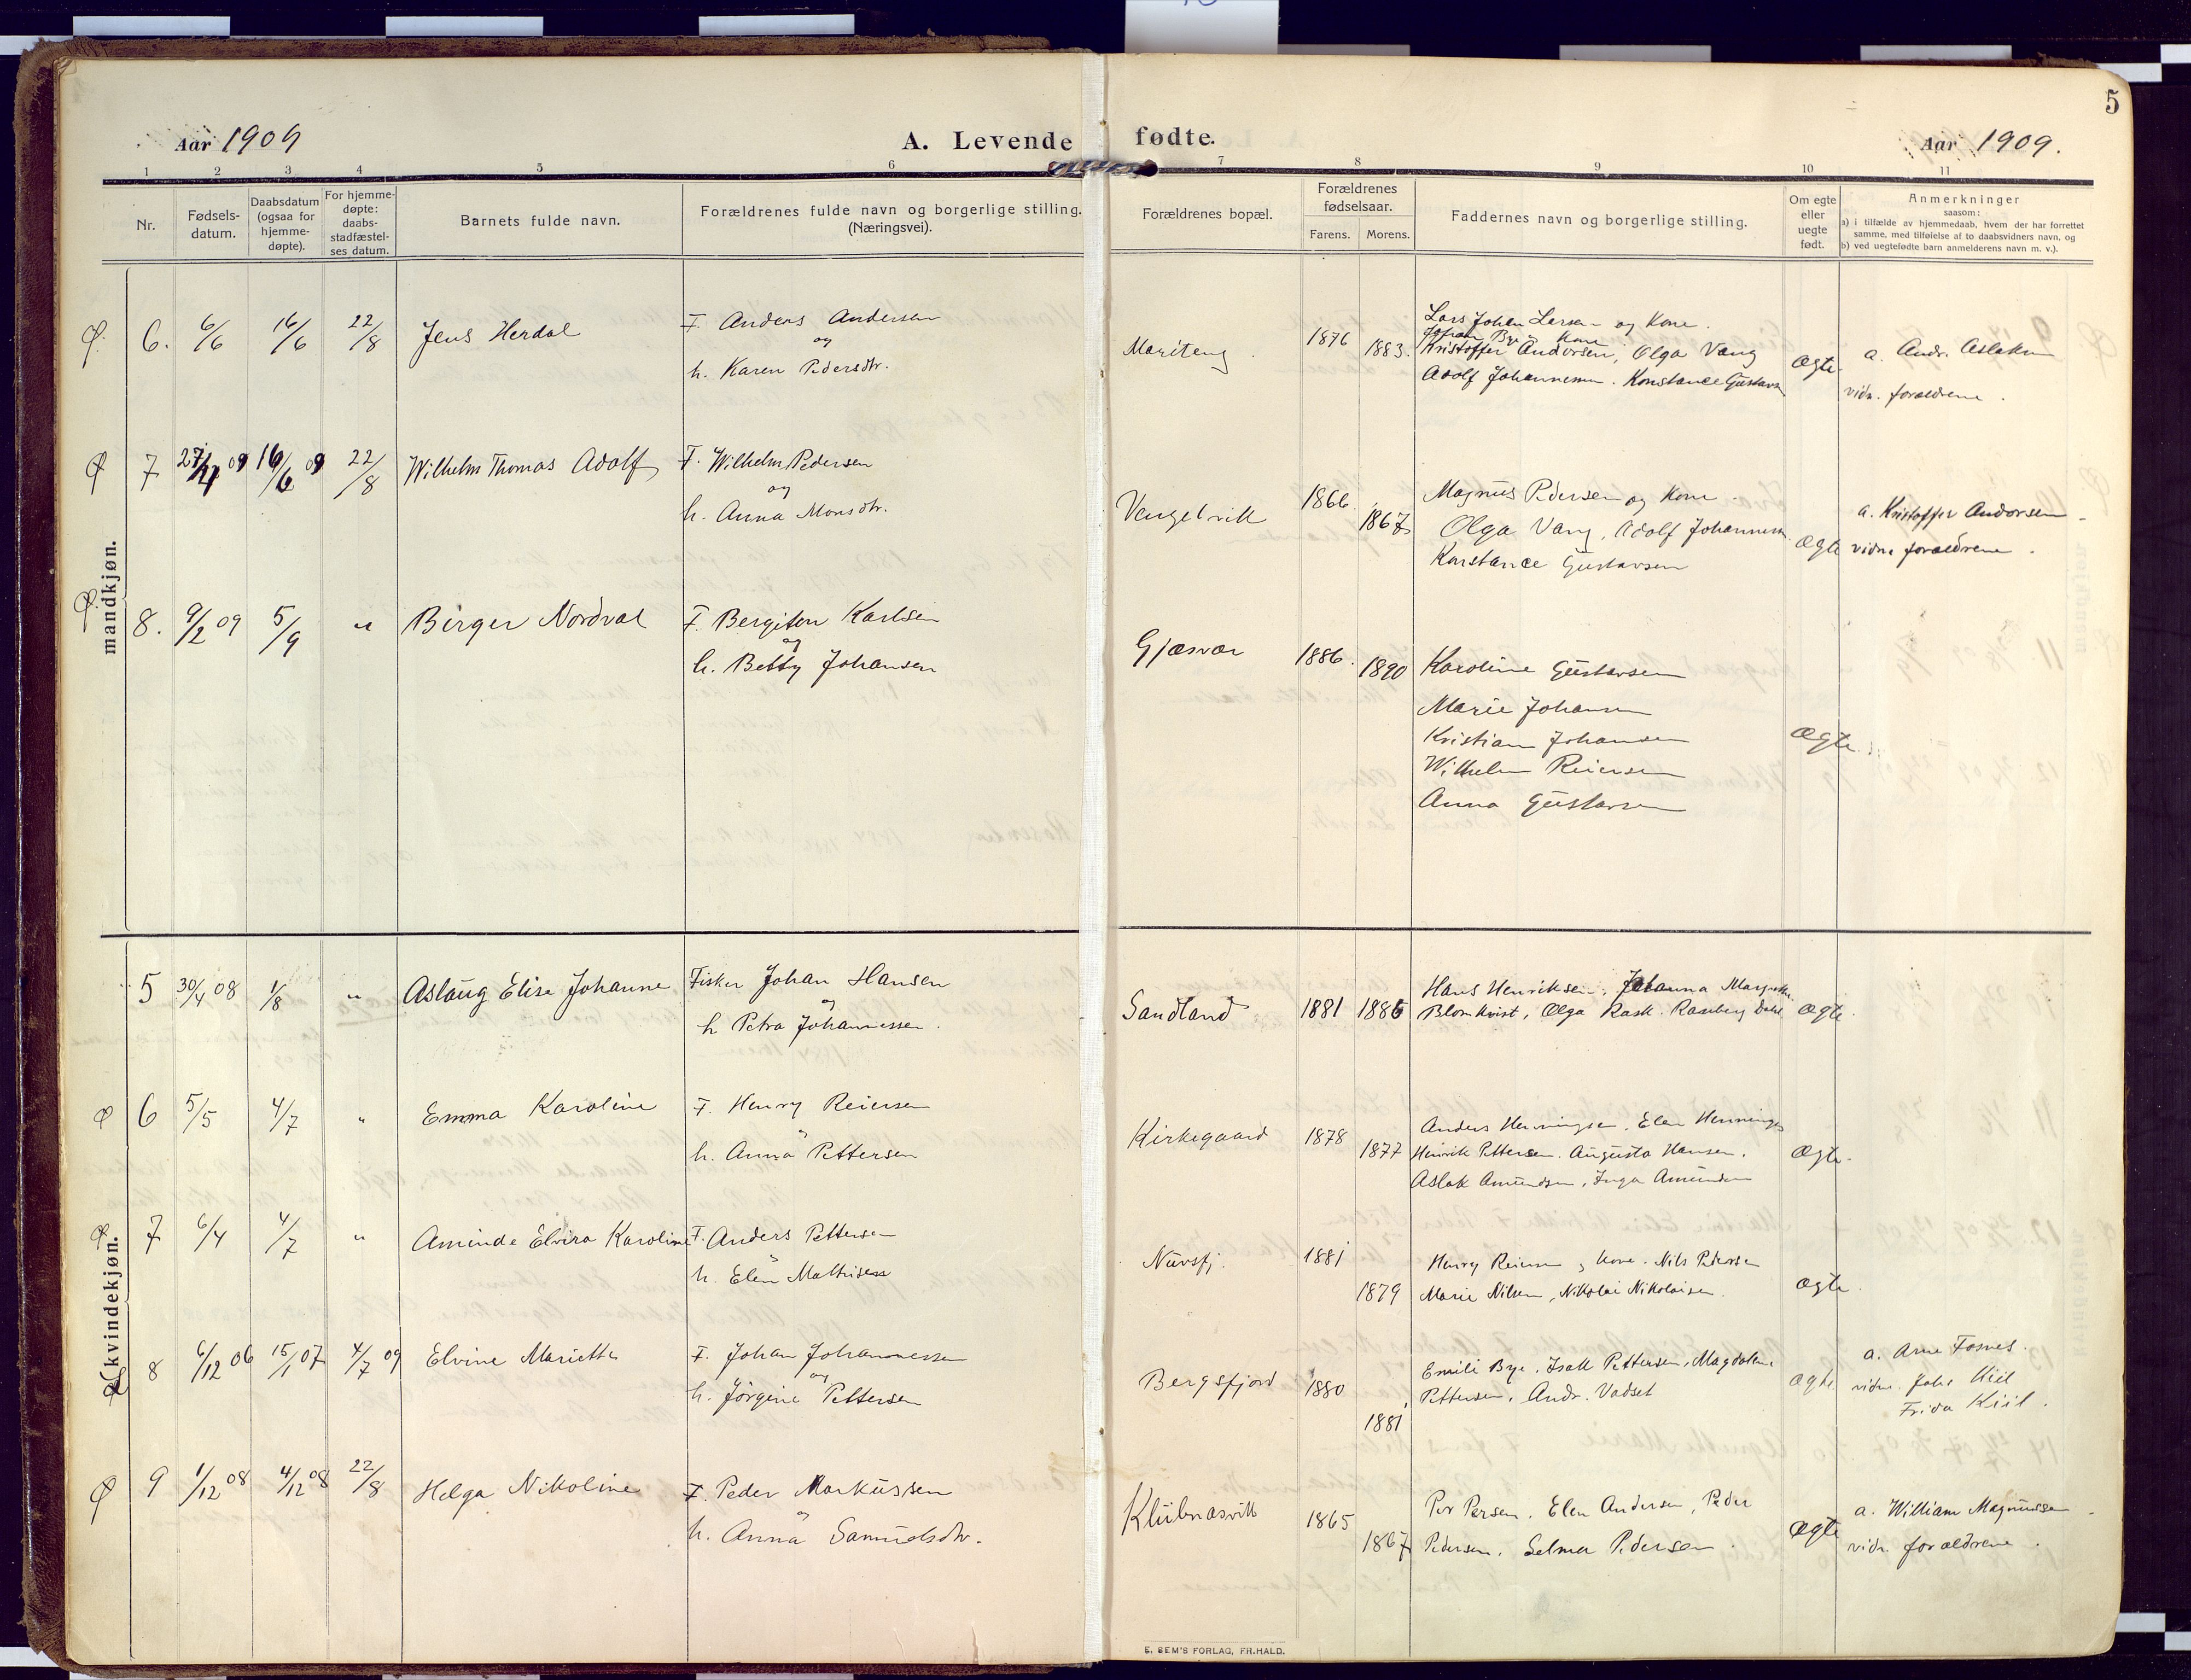 5
Aar 1909
A. Levende fødte.
Aar 1909.
1 2 3 4 5 6 7 8 9 10 11
Nr.
Fødsels-
datum.
Daabsdatum
(ogsaa for
hjemme-
døpte).
For hjemme-
døpte:
daabs-
stadfæstel-
ses datum.
Barnets fulde navn.
Forældrenes fulde navn og borgerlige stilling.
(Næringsvei).
Forældrenes bopæl.
Forældrenes
fødselsaar.
Farens. Morens.
Faddernes navn og borgerlige stilling.
Om egte
eller
uegte
født.
Anmerkninger
saasom:
a) i tilfælde av hjemmedaab, hvem der har forrettet
samme, med tilføielse af to daabsvidners navn, og
b) ved uegtefødte barn anmelderens navn m. v.).
mandkjøn.
6. 6/6 16/6 22/8 Jens Herdal
F. Anders Andersen
og
h. Karen Pedersdtr.
Mariteng. 1876 1883.
Lars Johan Larsen og Kone.
Johan Bye Kone
Kristoffer Andorsen, Olga Vang
Adolf Johannesen. Konstance Gustavsn
Ægte.
a. Andr. Aslaksn
vidn. forældrene.
7 16/6 09 22/8 Wilhelm Thomas Adolf
F. Wilhelm Pedersen
og
h. Anna Monsdtr.
Vengelvik 1866. 1867
Magnus Pedersen og Kone.
Olga Vang, Adolf Johannesn
Konstance Gustavsen
Ægte
a. Kristoffer Andorsen
vidne forældrene.
8. 9/2 09 5/9 " Birger Nordval
F. Bergiton Karlsen
og
h. Betty Johansen
Gjæsvær 1886. 1890
Karoline Gustavsen
Marie Johansen
Kristian Johansen
Wilhelm Reiersen
Anna Gustavsen
Ægte
kvindekjøn.
5 30/4 08 1/8 " Aslaug Elise Johanne
Fisker Johan Hansen
og
h Petra Johannessen.
Sandland 1881 1886
Hans Henriksen, Johanna
Blomkvist, Olga Rask. Dahl
Ægte.
6 5/5 4/7 " Emma Karoline
F. Henry Reiersen
"
h. Anna Pettersen
Kirkegaard 1878 1877
Anders Henningsen, Elen Hennings
Henrik Pettersen. Augusta Hansen,
Aslak Amundsen, Inga Amundsen
Ægte.
7 6/4 4/7 " Aminde Elvira Karoline
F. Anders Pettersen
"
h. Elen Mathisen
Nuvsfj. 1881 1879
Henry Reiersen, Kone. Nils Pedersen
Marie Nilsen, Nikolai Nikolaisen.
Ægte.
8 6/12 06 15/1 07 4/7 09 Elvine Mariette
F. Johan Johannessen
og
h. Jørgine Pettersen
Bergsfjord 1880 1881
Emili Bye, Isak Pettersen, Magdalene
Pettersen, Andr. Vadset
Ægte
a. Arne Fosnes.
vidne. Johs Kiil
Frida Kiil.
9 1/12 08 4/12 08 22/8 Helga Nikoline
F. Peder Markussen
og
h. Anna Samuelsdtr.
Klubnasvik 1865 1867
Per Persen, Elen Andersen, Peder
Pedersen, Selma Pedersen.
Ægte
a. William Magnussen
vidn. forældrene.
E. SEM'S FORLAG, FR.HALD.